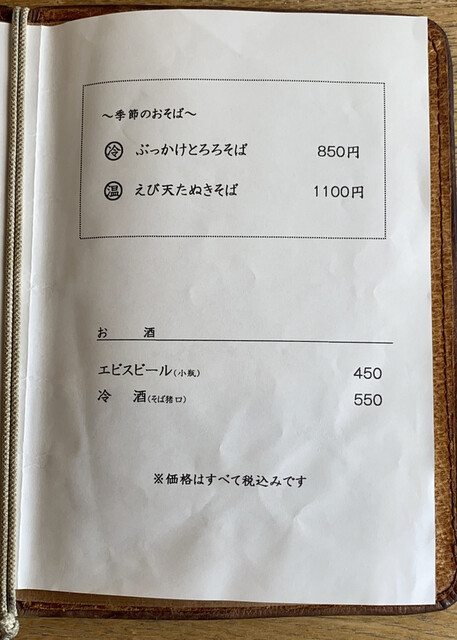 ～季節のおそば～
㊗冷 ぶっかけとろろそば 850円
温 えび天たぬきそば 1100円
お 酒
エビスビール(小瓶) 450
冷 酒(そば猪口) 550
※価格はすべて税込みです